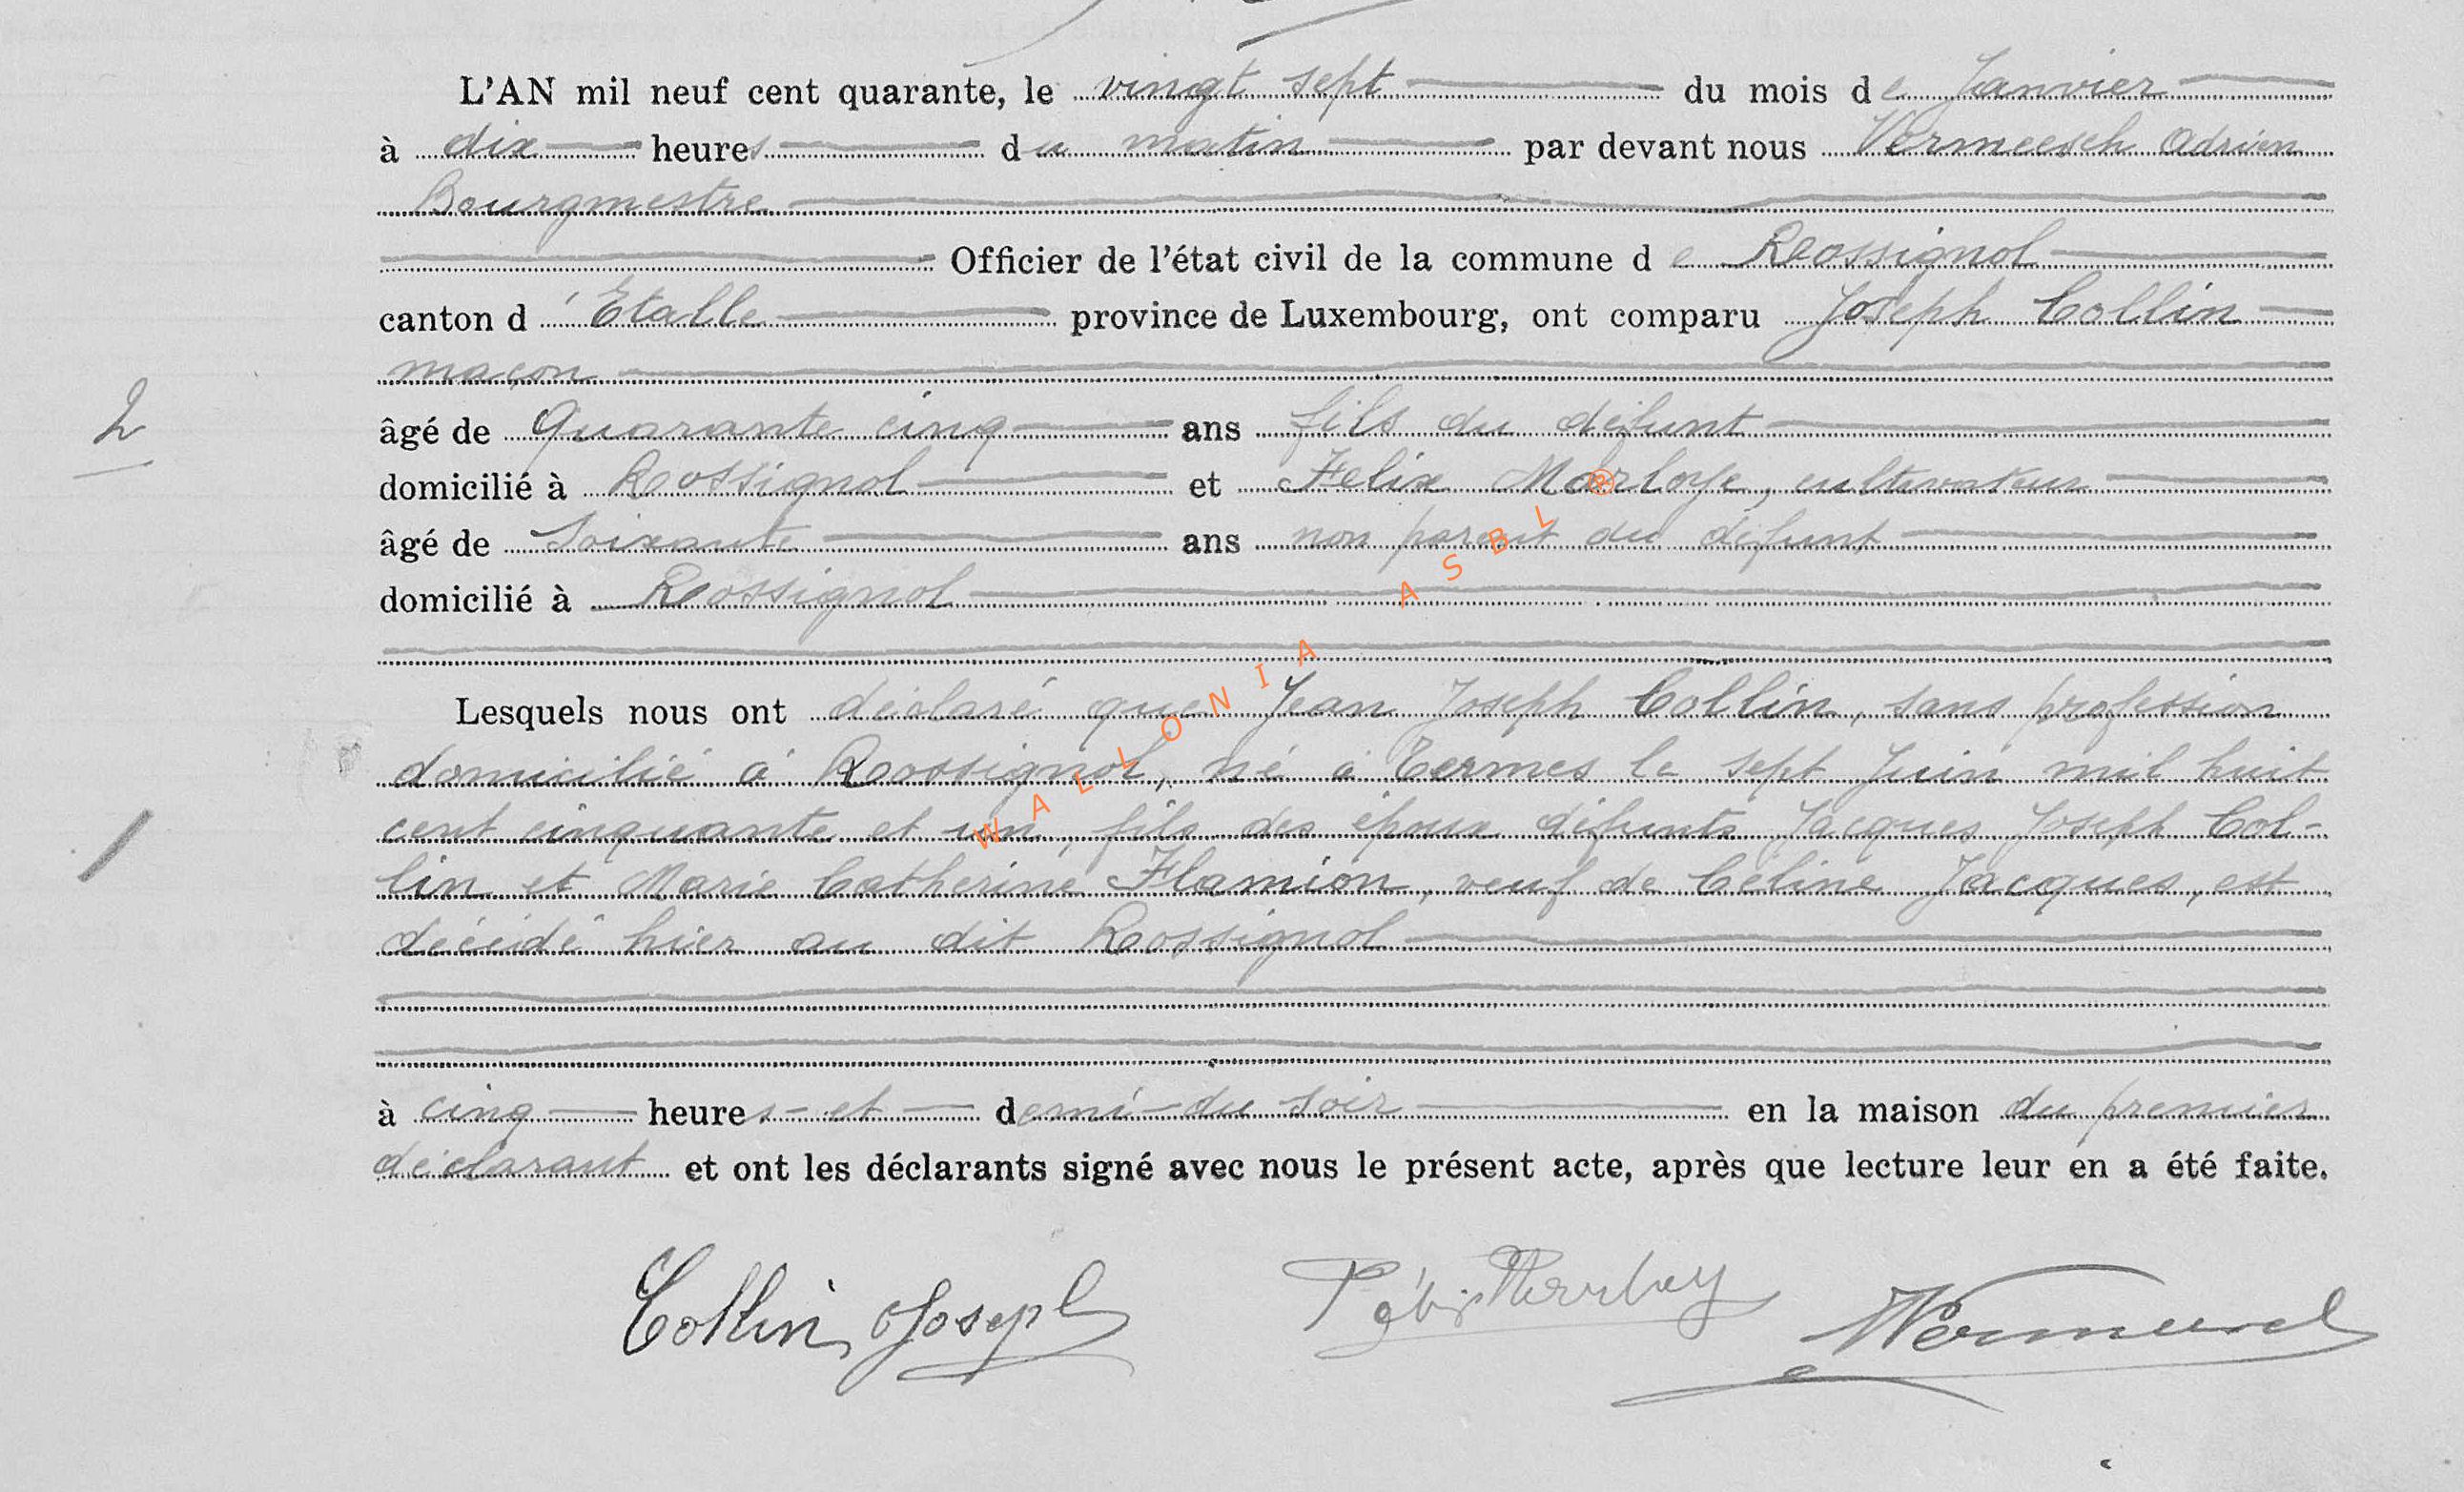 L'AN mil neuf cent quarante, le vingt sept du mois de Janvier
à dix heures du matin par devant nous Vermeesch Adrien
Bourgmestre
Officier de l'état civil de la commune de Rossignol
canton d'Etalle province de Luxembourg, ont comparu Joseph Collin
maçon
2
âgé de Quarante cinq ans fils du défunt
domicilié à Rossignol et Felix Marloye, cultivateur
âgé de Soixante ans non parent du défunt
domicilié à Rossignol
Lesquels nous ont déclaré que Jean Joseph Collin, sans profession
domicilié à Rossignol, né à Termes le sept Juin mil huit
cent cinquante et un, fils des époux défunts Jacques Joseph Col-
lin et Marie Catherine Flamion, veuf de Céline Jacques, est
décédé hier au dit Rossignol
à cinq heures et demi du soir en la maison du premier
déclarant et ont les déclarants signé avec nous le présent acte, après que lecture leur en a été faite.
Collin Joseph
WALLONIA ASBL ®